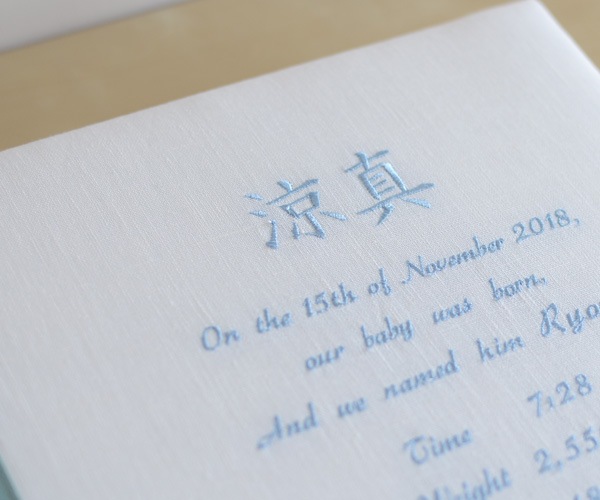 涼真
On the 15th of November 2018,
our baby was born.
And we named him Ryo
Time 7:28
Weight 2,55